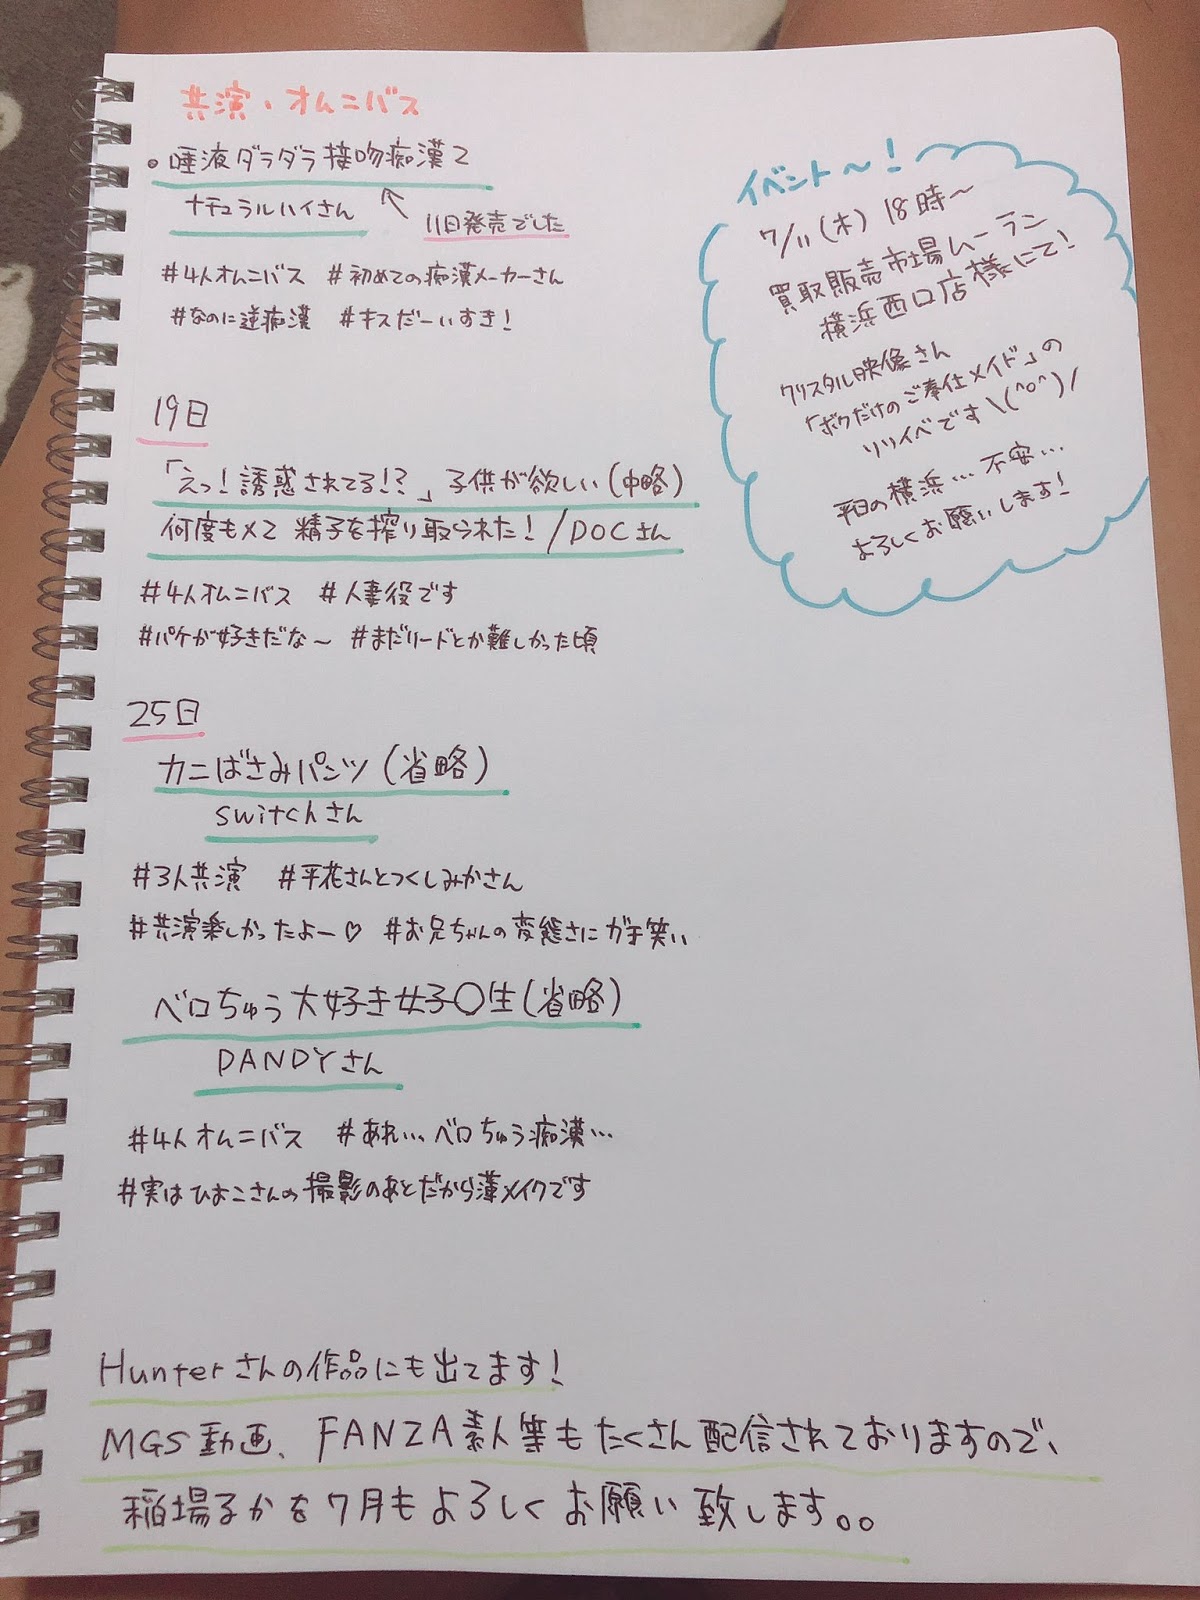 共演・オムニバス
。唾液ダラダラ接吻痴漢2
ナチュラルハイさん
11日発売でした
#4人オムニバス #初めての痴漢メーカーさん
#なのに逆痴漢 #キスだーいすき!
イベント〜!
7/11(木) 18時〜
買取販売市場ムーラン
横浜西口店様にて!
クリスタル映像さん
「ボクだけのご奉仕メイド」の
リリイベです\(^o^)/
平日の横浜…不安…
よろしくお願いします!
19日
「えっ!誘惑されてる!?」子供が欲しい(中略)
何度もメて精子を搾り取られた!/DOCさん
#4人オムニバス #人妻役です
#パケが好きだな〜 #まだリードとか難しかった頃
25日
カニばさみパンツ(省略)
switchさん
#3人共演 #平花さんとつくしみかさん
#共演楽しかったよー♡ #お兄ちゃんの変態さにガチ笑い
ベロちゅう大好き女子〇生(省略)
DANDYさん
#4人オムニバス #あれ…ベロちゅう痴漢…
#実はひよこさんの撮影のあとだから薄メイクです
Hunterさんの作品にも出てます!
MGS動画、FANZA素人等もたくさん配信されておりますので、
稲場るかを7月もよろしくお願い致します。。